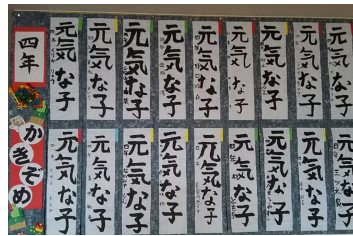 四年
かきぞめ
元気な子
元気な子
元気な子
元気な子
元気な子
元気な子
元気な子
元気な子
元気な子
元気な子
元気な子
元気な子
元気な子
元気な子
元気な子
元気な子
元気な子
元気な子